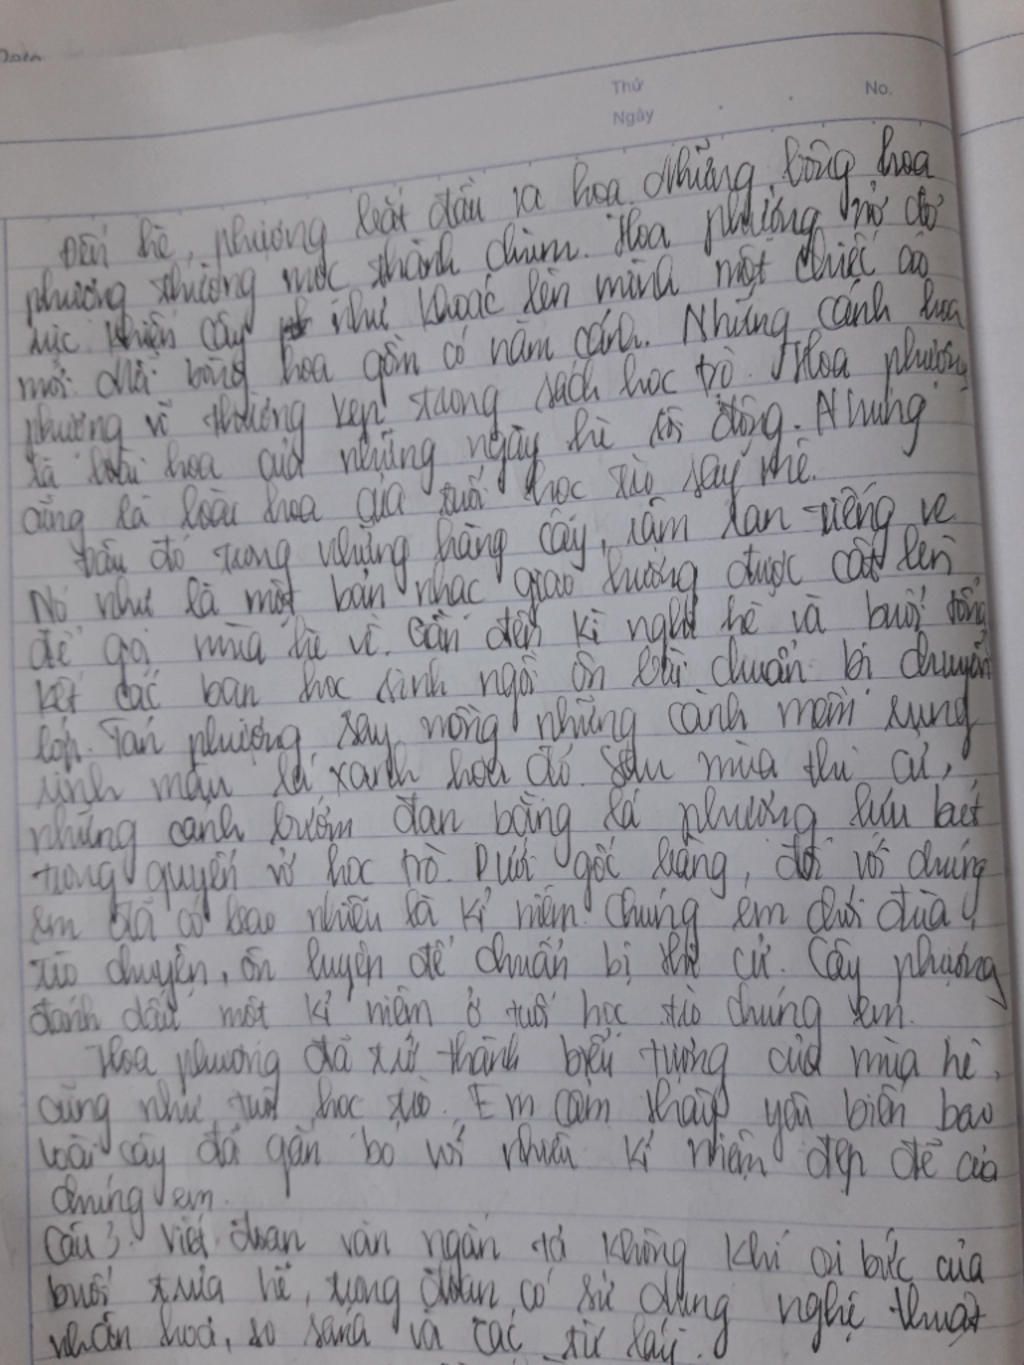 Thứ
Ngày
No.
Đến hè, phượng bắt đầu ra hoa. Những bông hoa
phượng thường mọc thành chùm. Hoa phượng nở đỏ
rực khiến cây như khoác lên mình một chiếc áo
mới. Mỗi bông hoa gồm có năm cánh. Những cánh hoa
phượng vĩ thường kẹp trong sách học trò. Hoa phượng
là loài hoa của những ngày hè sôi động. Nhưng
cũng là loài hoa của tuổi học trò say mê.
Đâu đó trong những hàng cây, râm ran tiếng ve
Nó như là một bản nhạc giao hưởng được cất lên
để gọi mùa hè về. Gần đến kì nghỉ hè và buổi tổng
kết các bạn học sinh ngồi ôn bài chuẩn bị chuyển
lớp. Tán phượng say nồng những cành mơn rung
rinh màu lá xanh hoa đỏ. Sau mùa thi cử,
những cánh bướm đan bằng lá phượng lưu bút
trong quyển vở học trò. Dưới gốc bàng, đối với chúng
em đã có bao nhiêu là kỉ niệm. Chúng em chơi đùa,
trò chuyện, ôn luyện để chuẩn bị thi cử. Cây phượng
đánh dấu một kỉ niệm ở tuổi học trò chúng em.
Hoa phượng đã trở thành biểu tượng của mùa hè,
cũng như tuổi học trò. Em cảm thấy yêu biết bao
loài cây đã gắn bó với nhiều kỉ niệm đẹp đẽ của
chúng em.
Câu 3. Viết đoạn văn ngắn tả không khí oi bức của
buổi trưa hè, trong đoạn có sử dụng nghệ thuật
nhân hoá, so sánh và các từ láy.